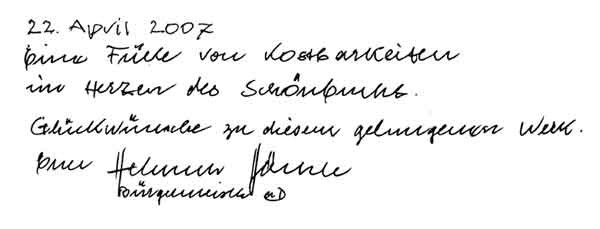 22. April 2007
Eine Fülle von Kostbarkeiten
im Herzen des Schönbuchs.
Glückwünsche zu diesem gelungenen Werk.
Euer Helmut
Bürgermeister aD